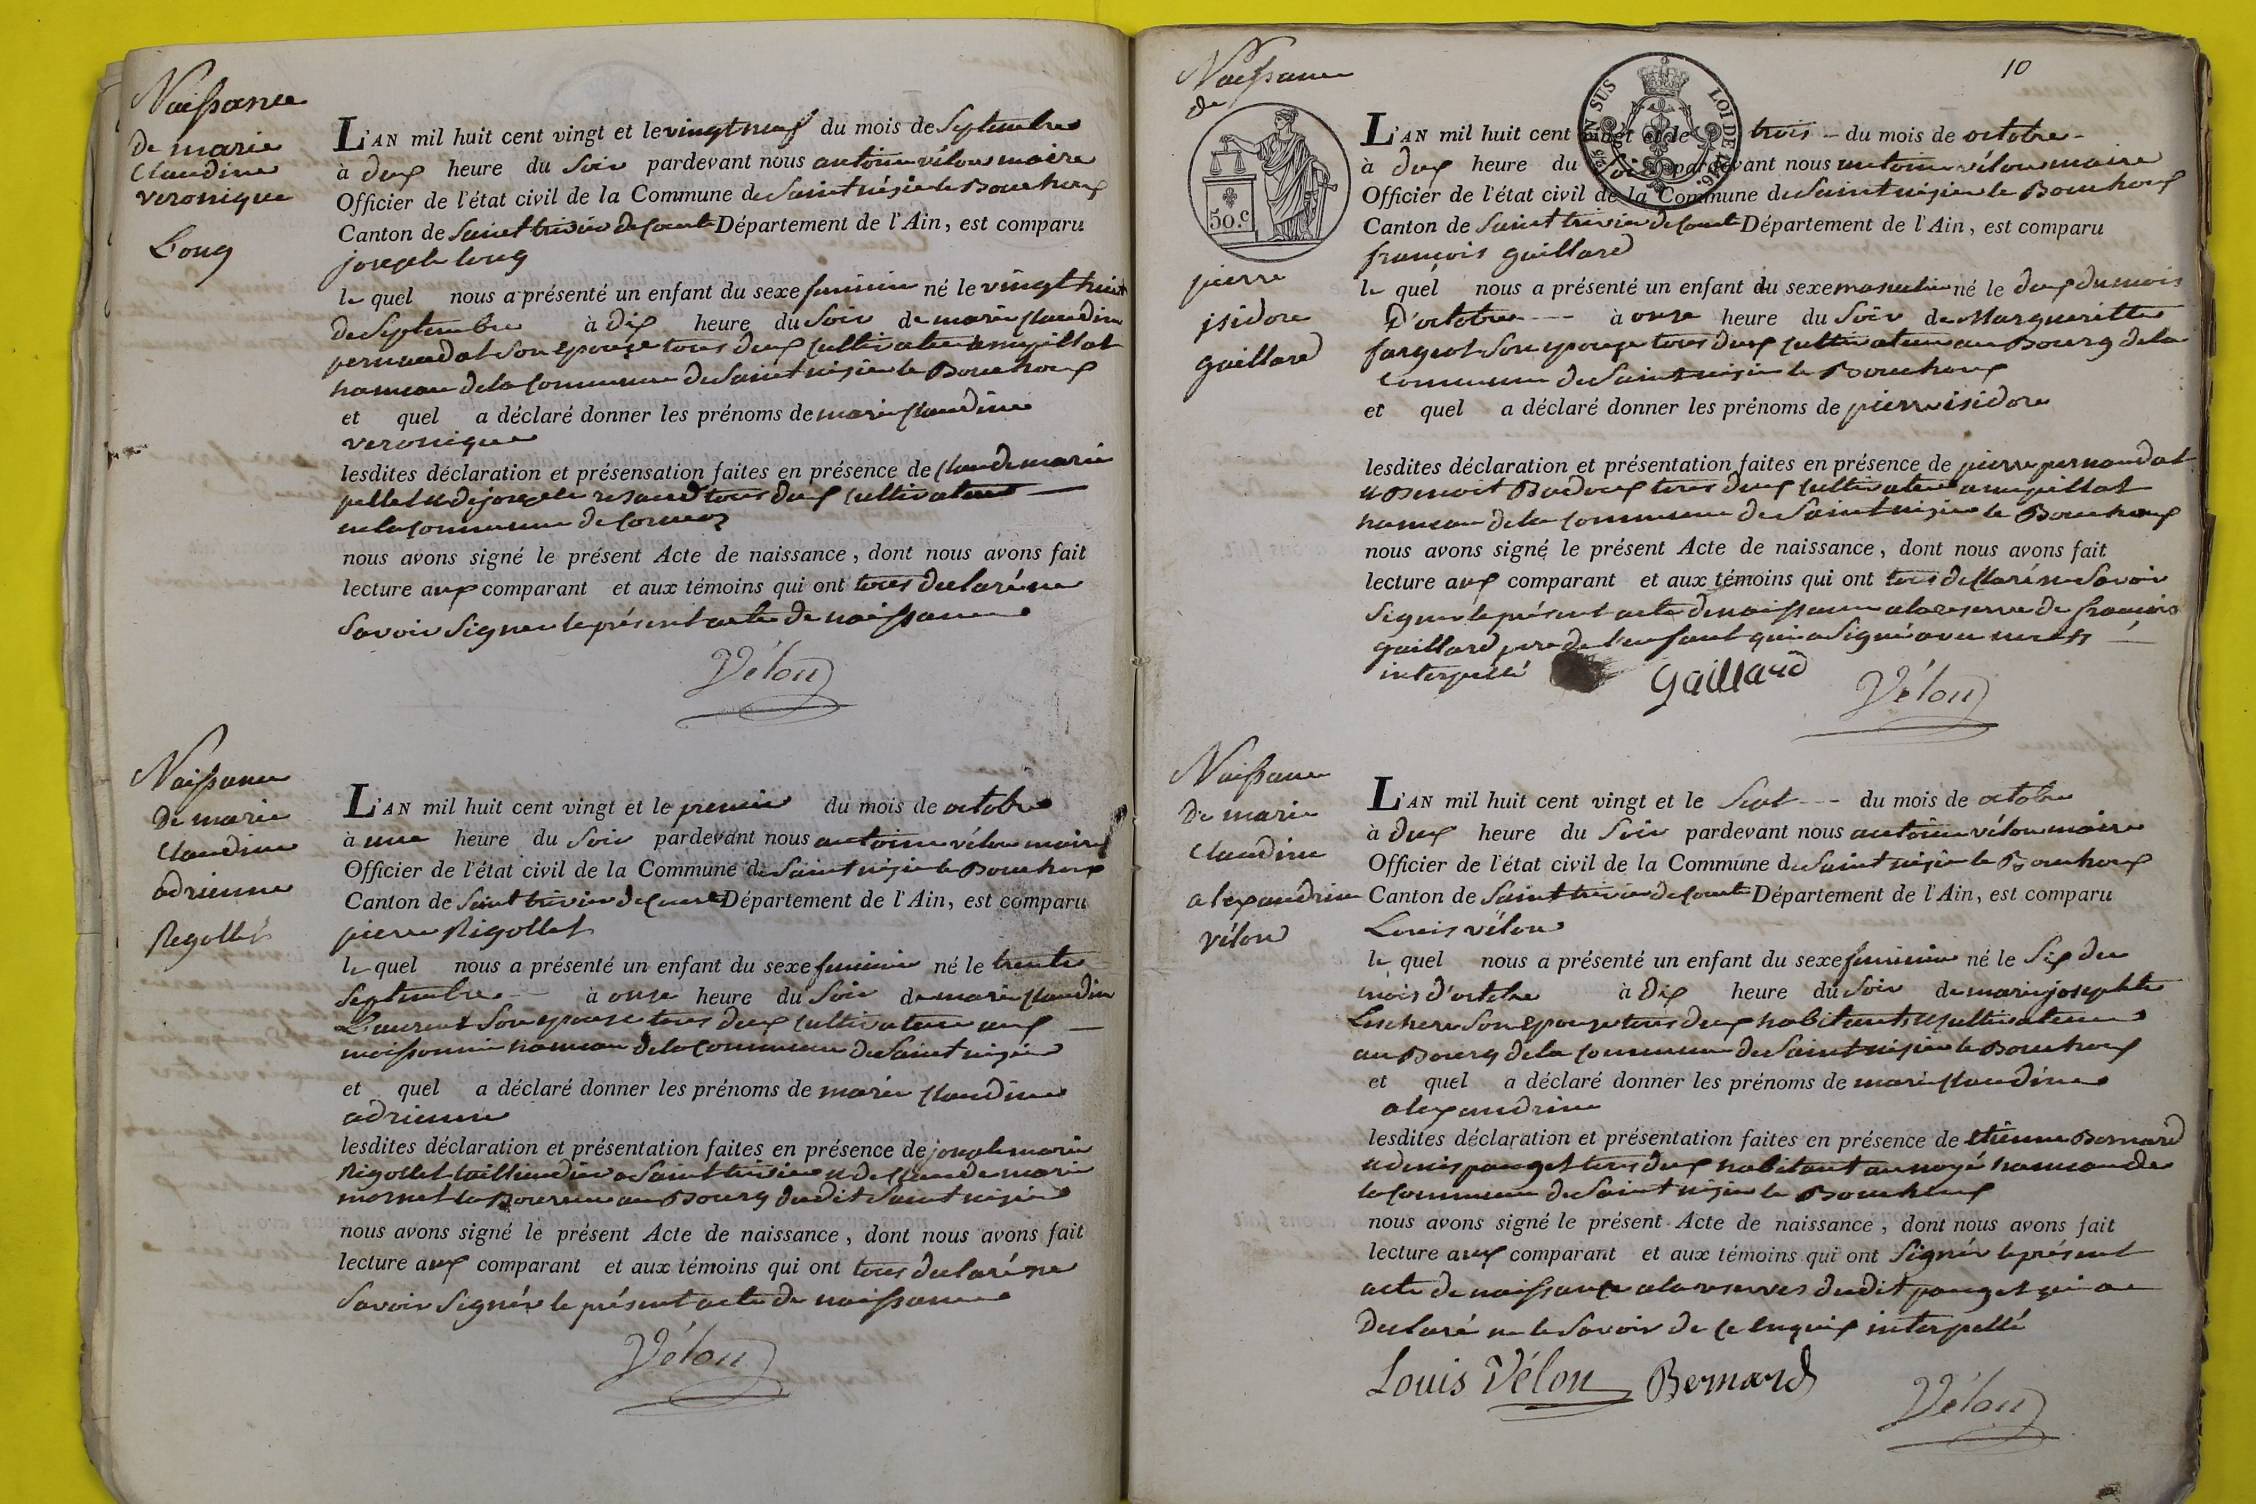 Naissance
de marie
Claudine
veronique
Long
L'AN mil huit cent vingt et le vingt neuf du mois de Septembre
à deux heure du Soir pardevant nous antoine vélon maire
Officier de l'état civil de la Commune de Saint nizier le Bouchoux
Canton de Saint trivier de Courte Département de l'Ain, est comparu
joseph long
le quel nous a présenté un enfant du sexe feminin né le vingt huit
de Septembre à dix heure du Soir de marie Claudine
pernaudat Son epouse tous deux Cultivateur
hameau de la Commune de Saint nizier le Bouchoux
et quel a déclaré donner les prénoms de marie Claudine
veronique
lesdites déclaration et présensation faites en présence de Claude marie
pellet et de joseph tous deux Cultivateur
en la Commune de Cormoz
nous avons signé le présent Acte de naissance, dont nous avons fait
lecture aux comparant et aux témoins qui ont tous declaré ne
Savoir Signer le présent acte de naissance
Vélon
Naissance
de marie
Claudine
adrienne
Rigollet
L'AN mil huit cent vingt et le premier du mois de octobre
à une heure du Soir pardevant nous antoine vélon maire
Officier de l'état civil de la Commune de Saint nizier le Bouchoux
Canton de Saint trivier de Courte Département de l'Ain, est comparu
pierre Rigollet
le quel nous a présenté un enfant du sexe feminin né le trente
Septembre à onze heure du Soir de marie Claudine
Laurent Son epouse tous deux Cultivateur aux
moissonnier hameau de la Commune de Saint nizier
et quel a déclaré donner les prénoms de marie Claudine
adrienne
lesdites déclaration et présentation faites en présence de joseph marie
Rigollet taillandier a Saint trivier et de Claude marie
mornet laboureur au Bourg dudit Saint nizier
nous avons signé le présent Acte de naissance, dont nous avons fait
lecture aux comparant et aux témoins qui ont tous declaré ne
Savoir Signér le présent acte de naissance
Vélon
10
Naissance
de
50.c
pierre
isidore
gaillard
EN SUS
LOI DE 1816.
L'AN mil huit cent vingt et le trois du mois de octobre
à deux heure du Soir pardevant nous antoine vélon maire
Officier de l'état civil de la Commune de Saint nizier le Bouchoux
Canton de Saint trivier de Courte Département de l'Ain, est comparu
françois gaillard
le quel nous a présenté un enfant du sexe masculin né le deux du mois
D'octobre à onze heure du Soir de Margueritte
fargeot Son epouse tous deux Cultivateur au Bourg de la
Commune de Saint nizier le Bouchoux
et quel a déclaré donner les prénoms de pierre isidore
lesdites déclaration et présentation faites en présence de pierre pernaudat
et Benoit Badoux tous deux Cultivateur
hameau de la Commune de Saint nizier le Bouchoux
nous avons signé le présent Acte de naissance, dont nous avons fait
lecture aux comparant et aux témoins qui ont tous declaré ne Savoir
Signer le présent acte de naissance a la reserve de françois
gaillard pere de l'enfant qui a Signé avec nous
interpellé
gaillard
Vélon
Naissance
De marie
Claudine
alexandrine
vélon
L'AN mil huit cent vingt et le Sept du mois de octobre
à deux heure du Soir pardevant nous antoine vélon maire
Officier de l'état civil de la Commune de Saint nizier le Bouchoux
Canton de Saint trivier de Courte Département de l'Ain, est comparu
Louis vélon
le quel nous a présenté un enfant du sexe feminin né le Six du
mois d'octobre à dix heure du Soir de marie josephte
Son Epouse tous deux habitants et Cultivateur
au Bourg de la Commune de Saint nizier le Bouchoux
et quel a déclaré donner les prénoms de marie Claudine
alexandrine
lesdites déclaration et présentation faites en présence de etienne Bernard
et denis pauget tous deux habitant au noyé hameau de
la Commune de Saint nizier le Bouchoux
nous avons signé le présent Acte de naissance, dont nous avons fait
lecture aux comparant et aux témoins qui ont Signér le présent
acte de naissance a la reserves dudit pauget qui a
Declaré ne le Savoir de Ce enquis interpellé
Louis Vélon
Bernard
Vélon